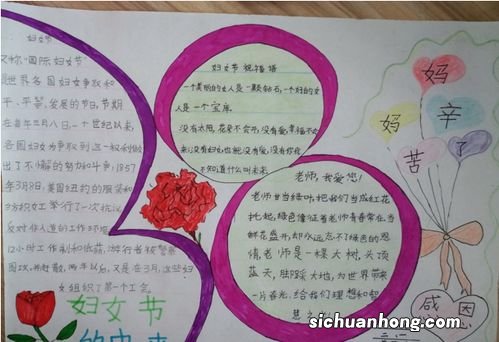 妇女节
又称“国际妇女节”
是世界各国妇女争取和
平、平等、发展的节日,节期
在每年三月八日,一个世纪以来,
各国妇女为争取到这一权利做
出了不懈的努力和斗争;1857
年3月8日,美国纽约的服装和
纺织女工举行了一次抗议,
反对非人道的工作环境,
12小时工作制和低薪,游行者被警察
围攻,并赶散,两年以后,又是在3月,这些妇
女组织了第一个工会。
妇女节
的由来
妇女节祝福语
一个美丽的女人是一颗钻石,一个好的女
人是一个宝库。
没有太阳,花朵不会开,没有爱,幸福不会
来;没有妇女,也就没有爱,没有你我
不知道什么叫未来。
老师,我爱您!
老师甘当绿叶,把我们当成红花
托起,绿色像征着老师青春常在,当
鲜花盛开,却永远忘不了绿色的恩
情,老师是一棵大树,头顶
蓝天,脚踩大地,为世界带来
一片春光,给我们理想和智
慧
妈
妈
辛
苦
了
感恩
sichuanhong.com